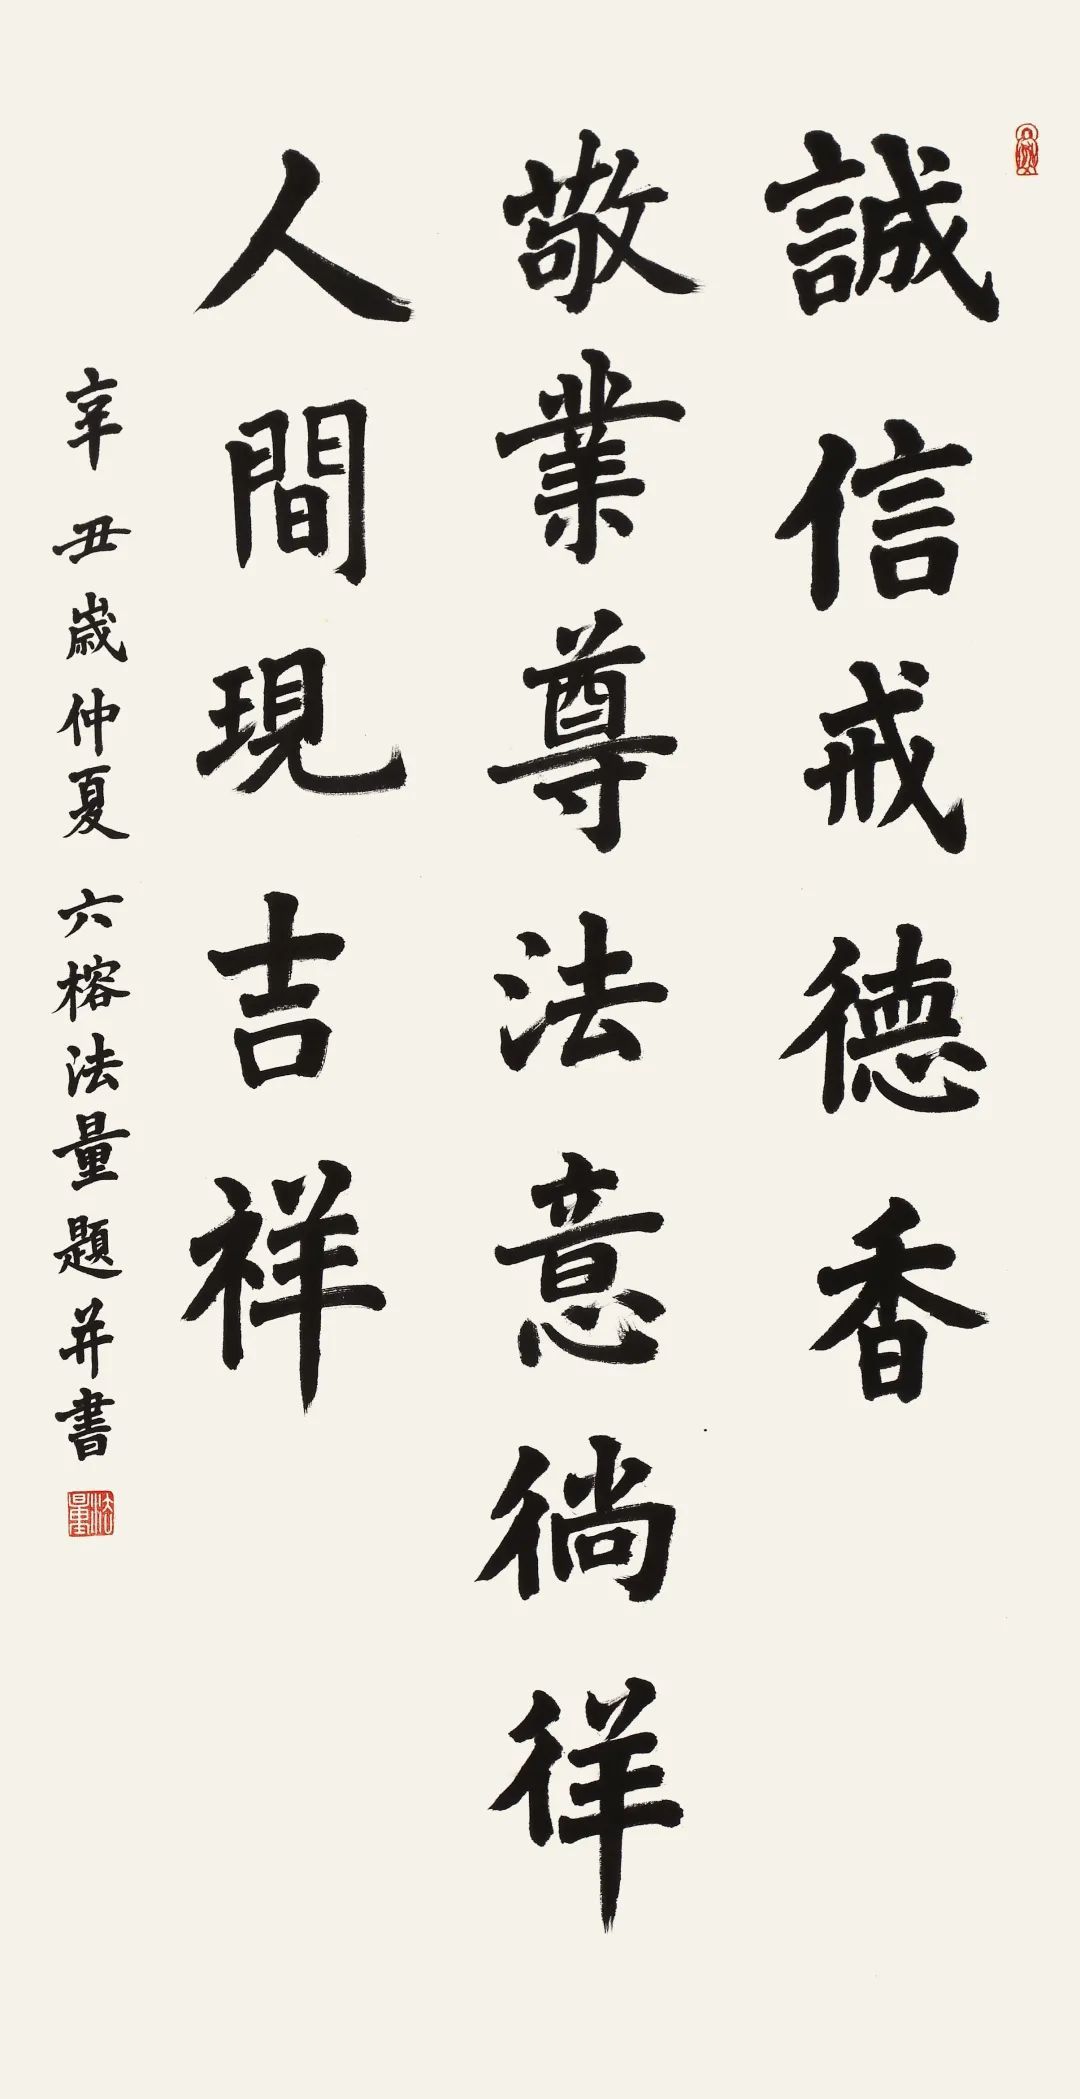 誠信戒德香
敬業尊法意徜徉
人間現吉祥
辛丑歲仲夏 六榕法量題并書
法量